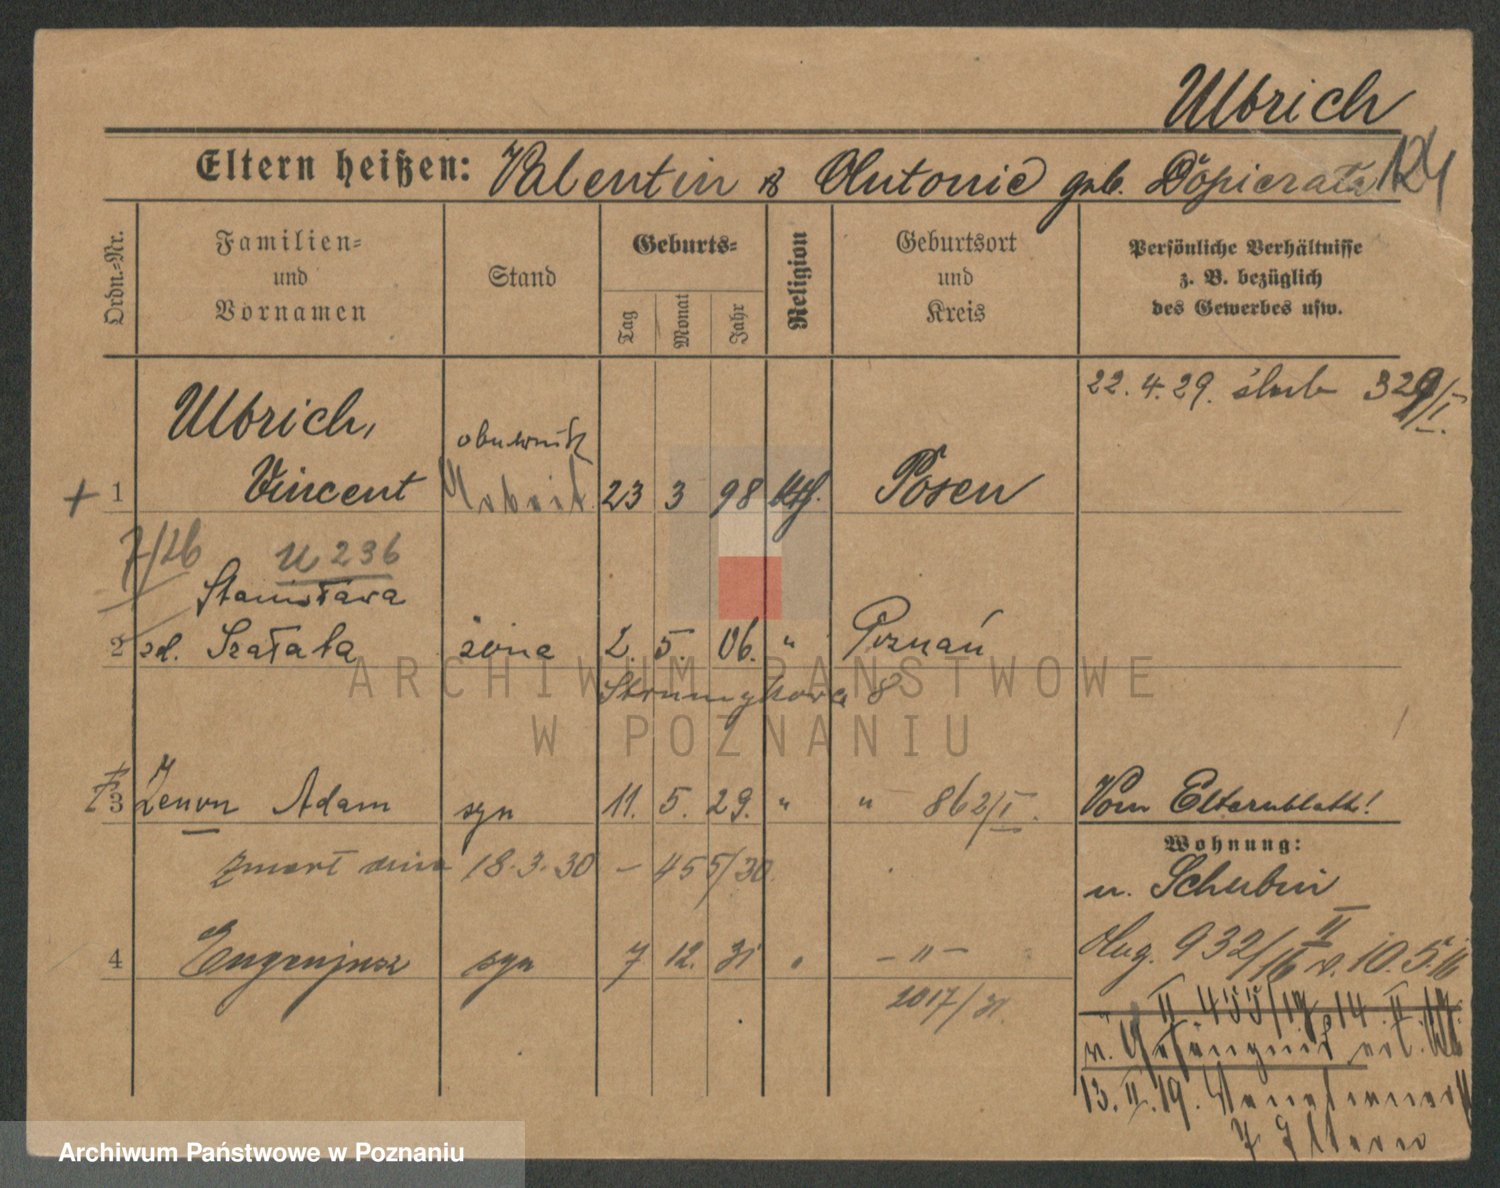 Ulbrich
Eltern heißen: Valentin & Antonie geb. Dopierała 124
Ordn.=Nr.
Familien=
und
Vornamen
Stand
Geburts=
Tag
Monat
Jahr
Religion
Geburtsort
und
Kreis
Persönliche Verhältnisse
z. B. bezüglich
des Gewerbes usw.
22.4.29. ślub
Ulbrich,
obuwnik
+ 1 Vincent Arbeit 23 3 98 kth. Posen
7/26 U 236
Stanisława
2 zd. Szałata żona 2. 5. 06. " Poznań
Strumykowa 8
3 Zenon Adam syn 11. 5. 29. " " 862/I. Vom Elternblatt!
Wohnung:
zmarł dnia 18.3.30 – 455/30
n. Schubin
4 Eugenjusz syn 7 12. 31 " – " –
Aug. 932/16 v. 10.5.16
2017/31.
II 455/19 14.II.19.
v. Gefängnis
13.II.19.
z Eltern
Archiwum Państwowe w Poznaniu
ARCHIWUM PAŃSTWOWE
W POZNANIU